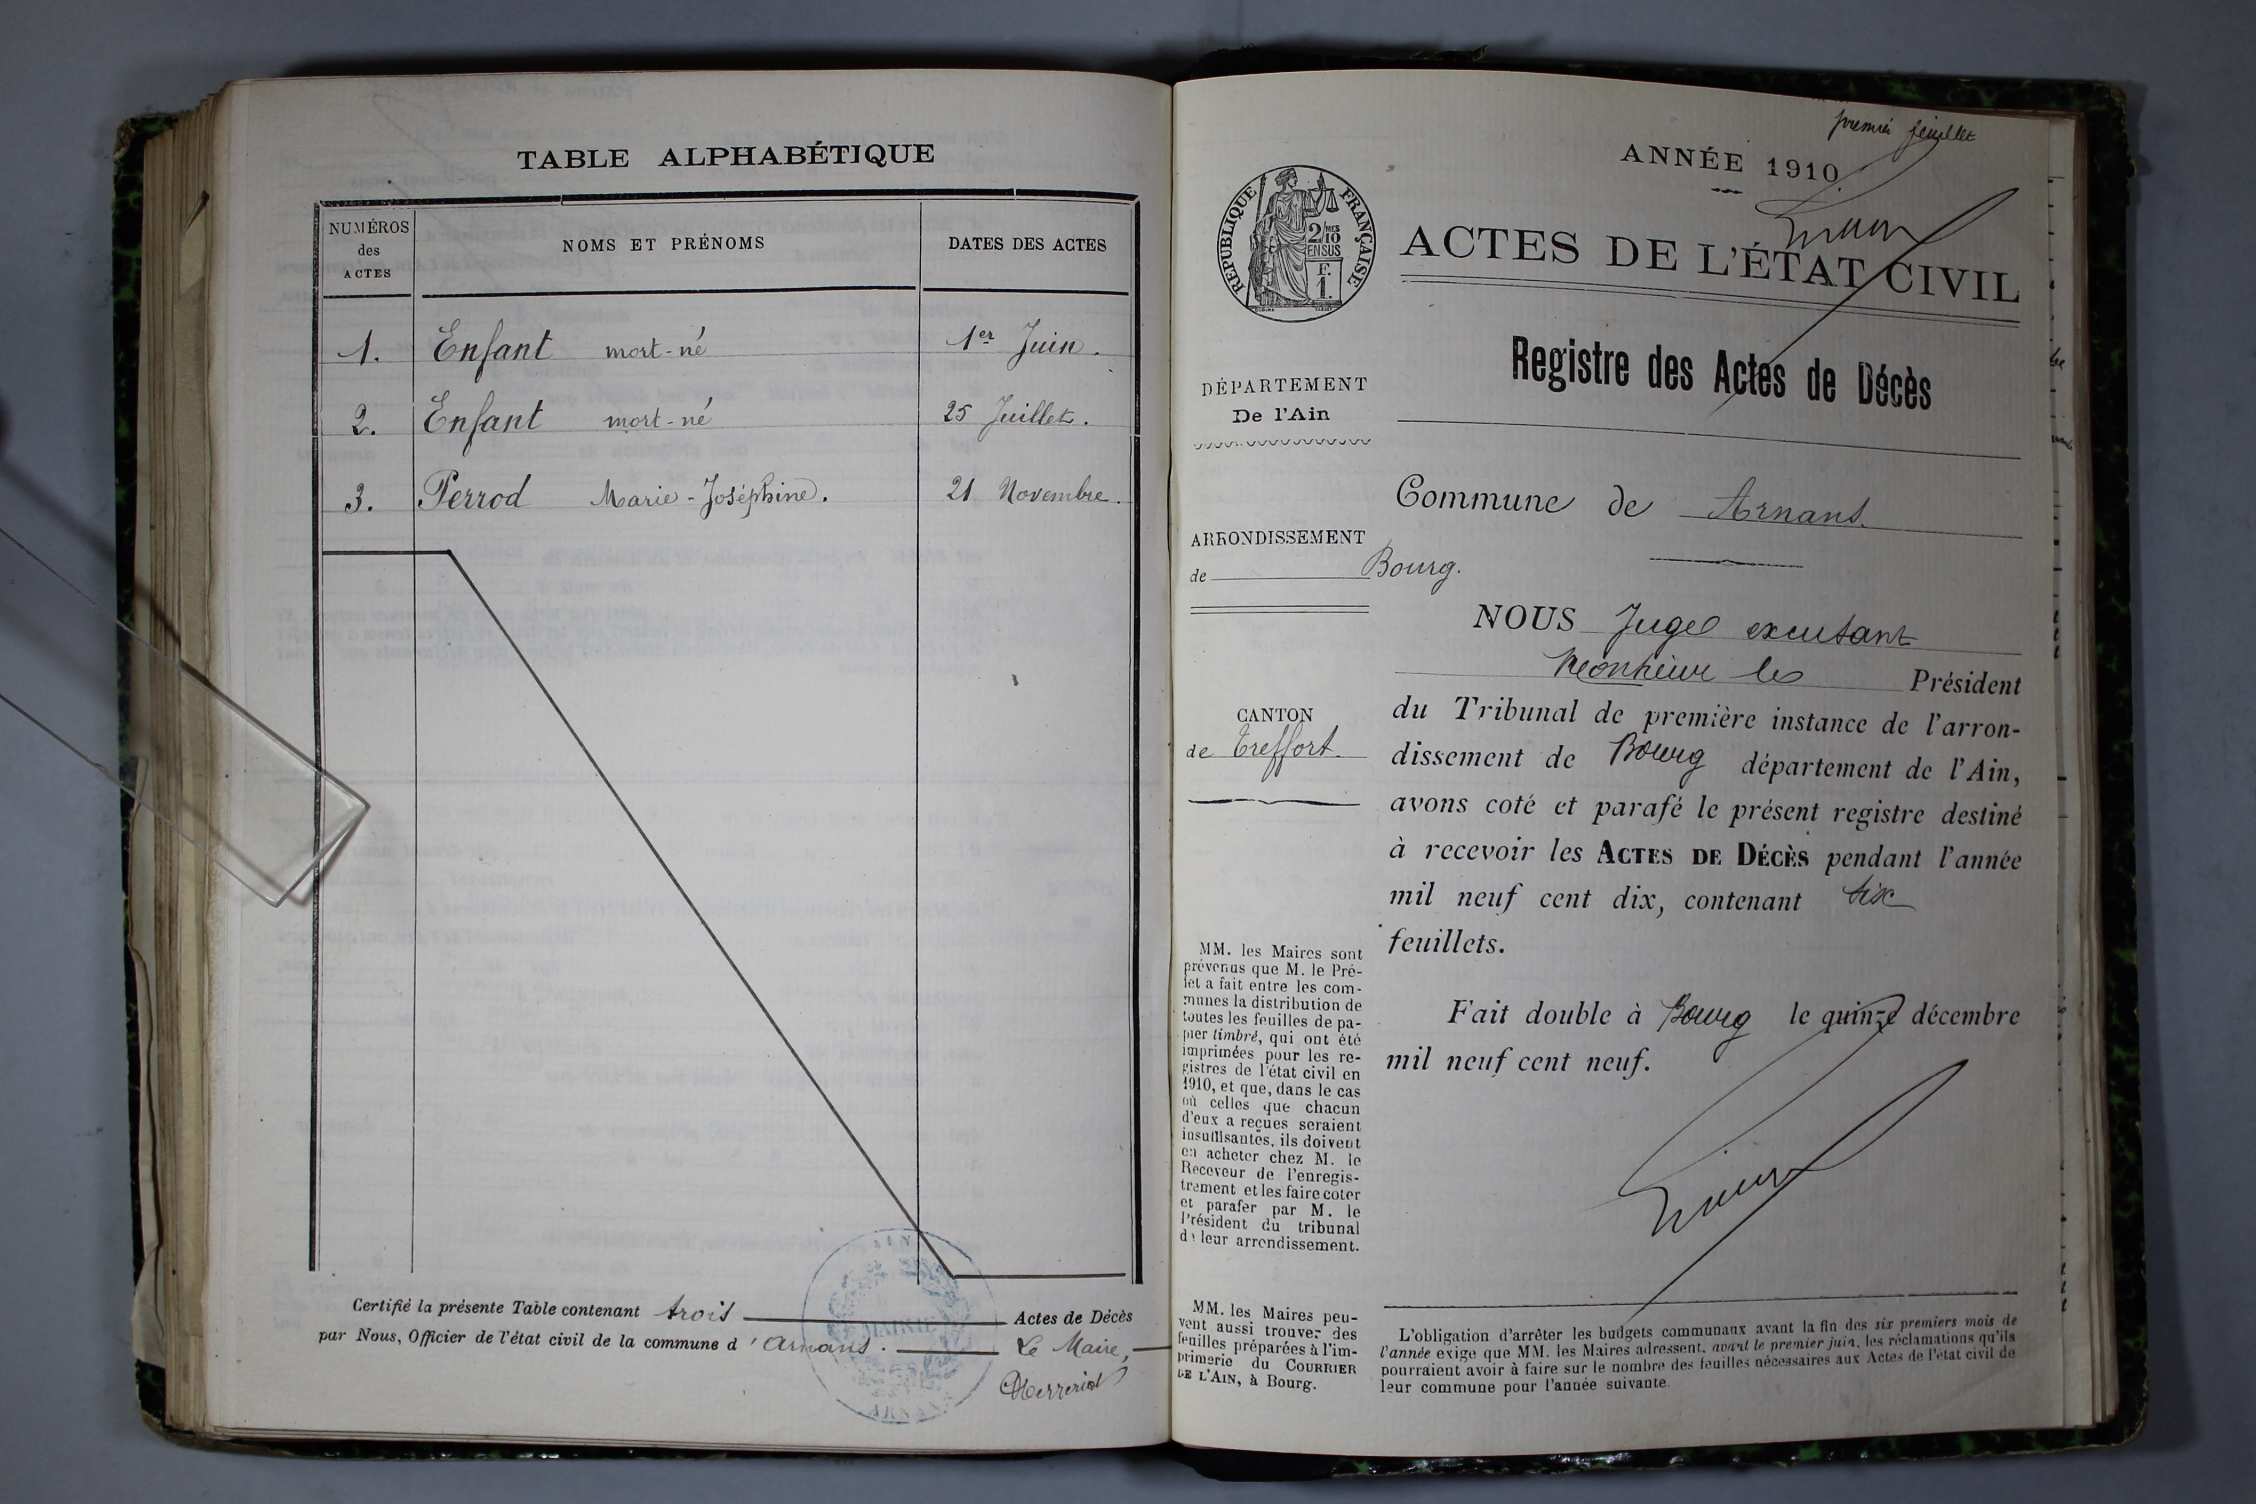 TABLE ALPHABÉTIQUE
NUMÉROS
des
ACTES
NOMS ET PRÉNOMS
DATES DES ACTES
1. Enfant mort-né 1er Juin.
2. Enfant mort-né 25 Juillet.
3. Perrod Marie-Joséphine. 21 Novembre.
Certifié la présente Table contenant trois Actes de Décès
par Nous, Officier de l'état civil de la commune d'Arnans. Le Maire,
AIN
MAIRIE
premier feuillet
ANNÉE 1910
RÉPUBLIQUE FRANÇAISE
2/10
EN SUS
F.
1.
ACTES DE L'ÉTAT CIVIL
Registre des Actes de Décès
DÉPARTEMENT
De l'Ain
Commune de Arnans
ARRONDISSEMENT
de Bourg.
CANTON
de Treffort
NOUS Juge excusant
Monsieur le Président
du Tribunal de première instance de l'arron-
dissement de Bourg département de l'Ain,
avons coté et parafé le présent registre destiné
à recevoir les ACTES DE DÉCÈS pendant l'année
mil neuf cent dix, contenant six
feuillets.
Fait double à Bourg le quinze décembre
mil neuf cent neuf.
MM. les Maires sont
prévenus que M. le Pré-
fet a fait entre les com-
munes la distribution de
toutes les feuilles de pa-
pier timbré, qui ont été
imprimées pour les re-
gistres de l'état civil en
1910, et que, dans le cas
où celles que chacun
d'eux a reçues seraient
insuffisantes, ils doivent
en acheter chez M. le
Receveur de l'enregis-
trement et les faire coter
et parafer par M. le
Président du tribunal
de leur arrondissement.
MM. les Maires peu-
vent aussi trouver des
feuilles préparées à l'im-
primerie du COURRIER
DE L'AIN, à Bourg.
L'obligation d'arrêter les budgets communaux avant la fin des six premiers mois de
l'année exige que MM. les Maires adressent, avant le premier juin, les réclamations qu'ils
pourraient avoir à faire sur le nombre des feuilles nécessaires aux Actes de l'état civil de
leur commune pour l'année suivante.